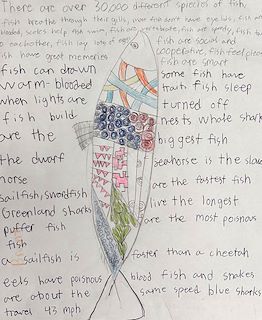 There are over 30,000 different species of fish,
fish breathe through their gills, most fish don't have eye lids, fish are
blooded, scales help fish swim, fish are vertebrates fish are speedy, fish
to eachother, fish lay lots of eggs fish are social and
fish have great memories cooperative, fish feel
fish can drown fish are smart
warm-blooded some fish have
when lights are trait fish sleep
fish build turned off
are the nests whale shark
the dwarf biggest fish
horse seahorse is the slow
sailfish, swordfish are the fastest fish
Greenland sharks live the longest
puffer fish are the most poisnous
fish
a sailfish is faster than a cheetah
eels have poisnous blood fish and snakes
are about the same speed blue sharks
travel 43 mph